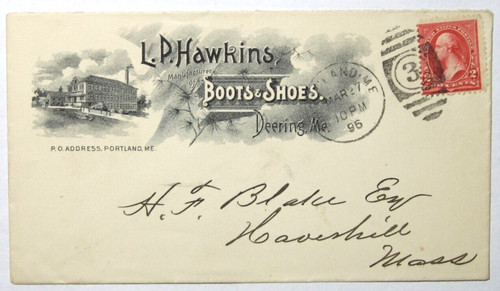 L.P. Hawkins,
Manufacturer of
Boots & Shoes.
Deering, Me.
P.O. ADDRESS, PORTLAND, ME.
LAND, ME.
MAR 27
10 PM
96
3
H. F. Blake Esq
Haverhill
Mass